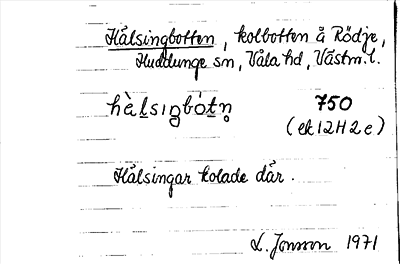 Hälsingbotten, kolbotten å Rödje,
Huddunge sn, Våla hd, Västm. l.
hὰl̠sıŋbót̠n̥ 750
(ek 12H2e)
Hälsingar kolade där.
L. Jonsson 1971